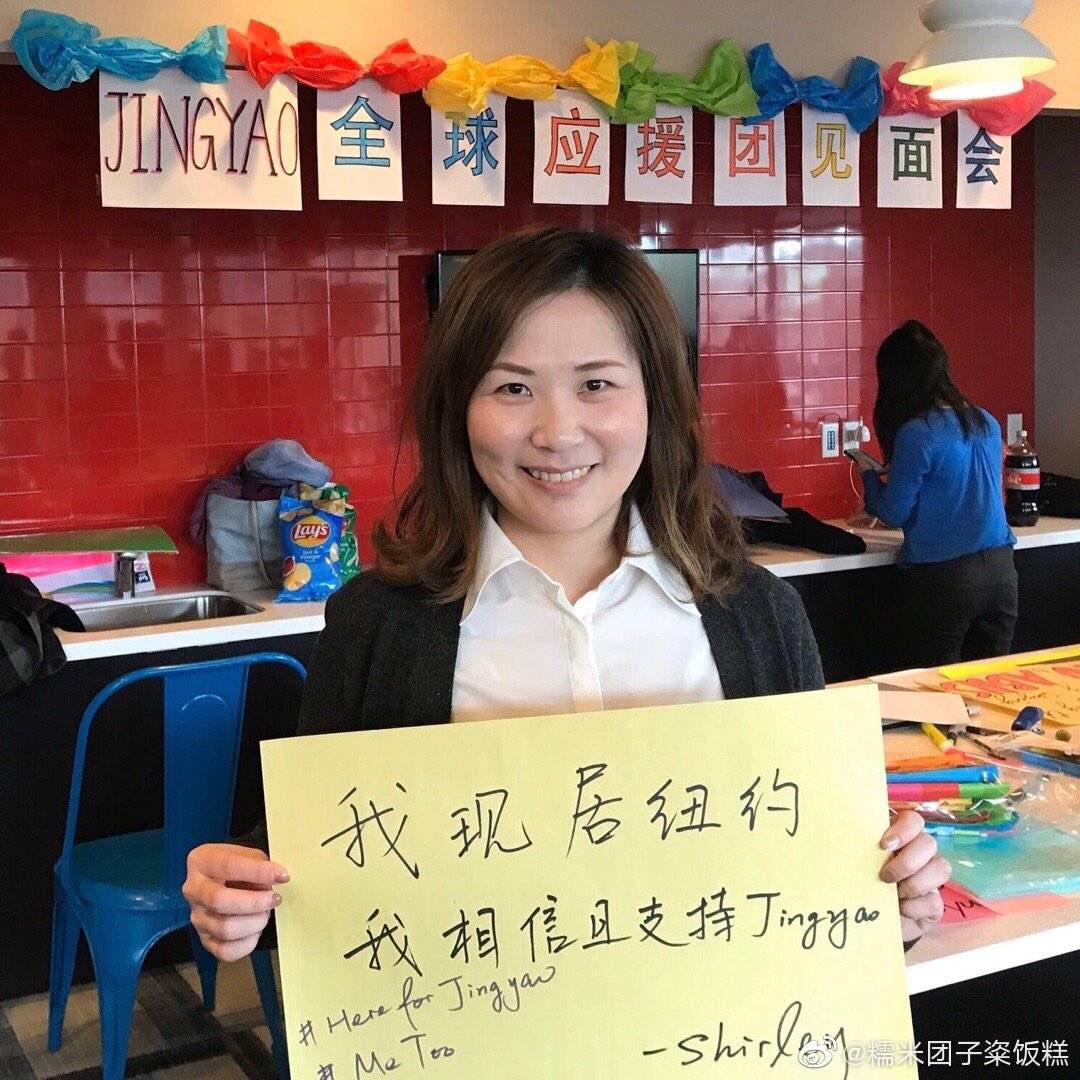 JINGYAO 全球应援团见面会
Lay's
我现居纽约
我相信且支持Jingyao
#Here for Jingyao
# Me Too
-Shirley
@糯米团子粢饭糕